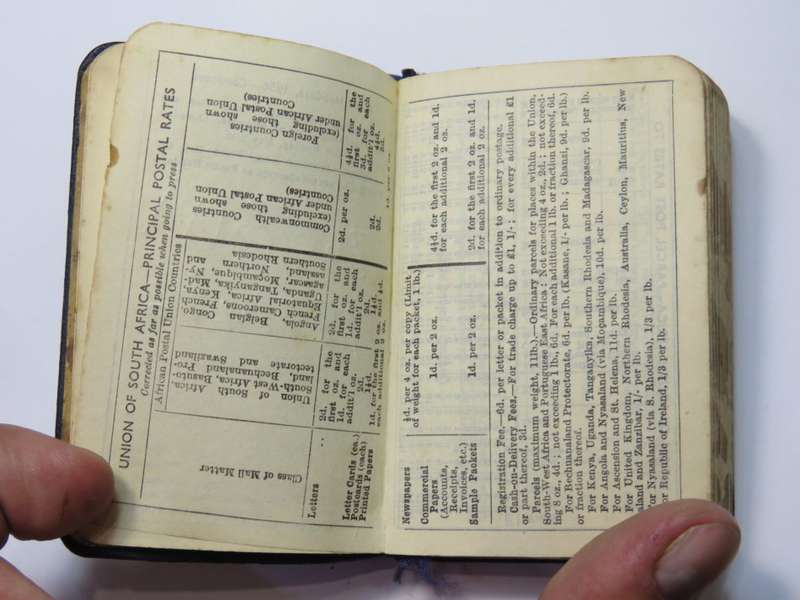 UNION OF SOUTH AFRICA—PRINCIPAL POSTAL RATES
Corrected as far as possible when going to press
African Postal Union Countries
Class of Mail Matter
Union of South Africa,
South-West Africa, Basuto-
land, Bechuanaland Pro-
tectorate and Swaziland
Angola, Belgian Congo,
French Cameroons, French
Equatorial Africa, Kenya,
Uganda, Tanganyika, Mad-
agascar, Moçambique, Ny-
asaland, Northern and
Southern Rhodesia
Commonwealth Countries
(excluding those shown
under African Postal Union
Countries)
Foreign Countries
(excluding those shown
under African Postal Union
Countries)
Letters ..
2d. for the
first oz. and
1d. for each
addit'l oz.
2d. for the
first oz. and
1d. for each
addit'l oz.
2d. per oz.
4½d. for the
first oz. and
3d. for each
addit'l oz.
Letter Cards (ea.)
Postcards (each)
Printed Papers
Newspapers
½d. per 4 oz. per copy (Limit
of weight for each packet, 1 lb.)
Commercial
Papers
(Accounts,
Receipts,
Invoices, etc.)
1d. per 2 oz.
4½d. for the first 2 oz. and 1d.
for each additional 2 oz.
Sample Packets
1d. per 2 oz.
2d. for the first 2 oz. and 1d.
for each additional 2 oz.
Registration Fee.—6d. per letter or packet in addition to ordinary postage.
Cash-on-Delivery Fees.—For trade charge up to £1, 1/-; for every additional £1
or part thereof, 3d.
Parcels (maximum weight, 11lb.).—Ordinary parcels for places within the Union,
South-West Africa and Portuguese East Africa: Not exceeding 4 oz., 2d.; not exceed-
ing 8 oz., 4d.; not exceeding 1 lb., 6d. For each additional 1 lb. or fraction thereof, 6d.
For Bechuanaland Protectorate, 6d. per lb. (Kasane, 1/- per lb.; Ghansi, 9d. per lb.)
or fraction thereof.
For Kenya, Uganda, Tanganyika, Southern Rhodesia and Madagascar, 9d. per lb.
For Angola and Nyasaland (via Moçambique), 10d. per lb.
For Ascension and St. Helena, 11d. per lb.
For United Kingdom, Northern Rhodesia, Australia, Ceylon, Mauritius, New
aland and Zanzibar, 1/- per lb.
or Nyasaland (via S. Rhodesia), 1/3 per lb.
or Republic of Ireland, 1/3 per lb.